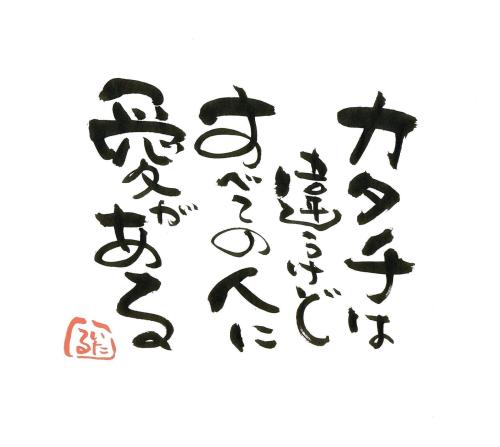 カタチは
違うけど
すべての人に
愛がある